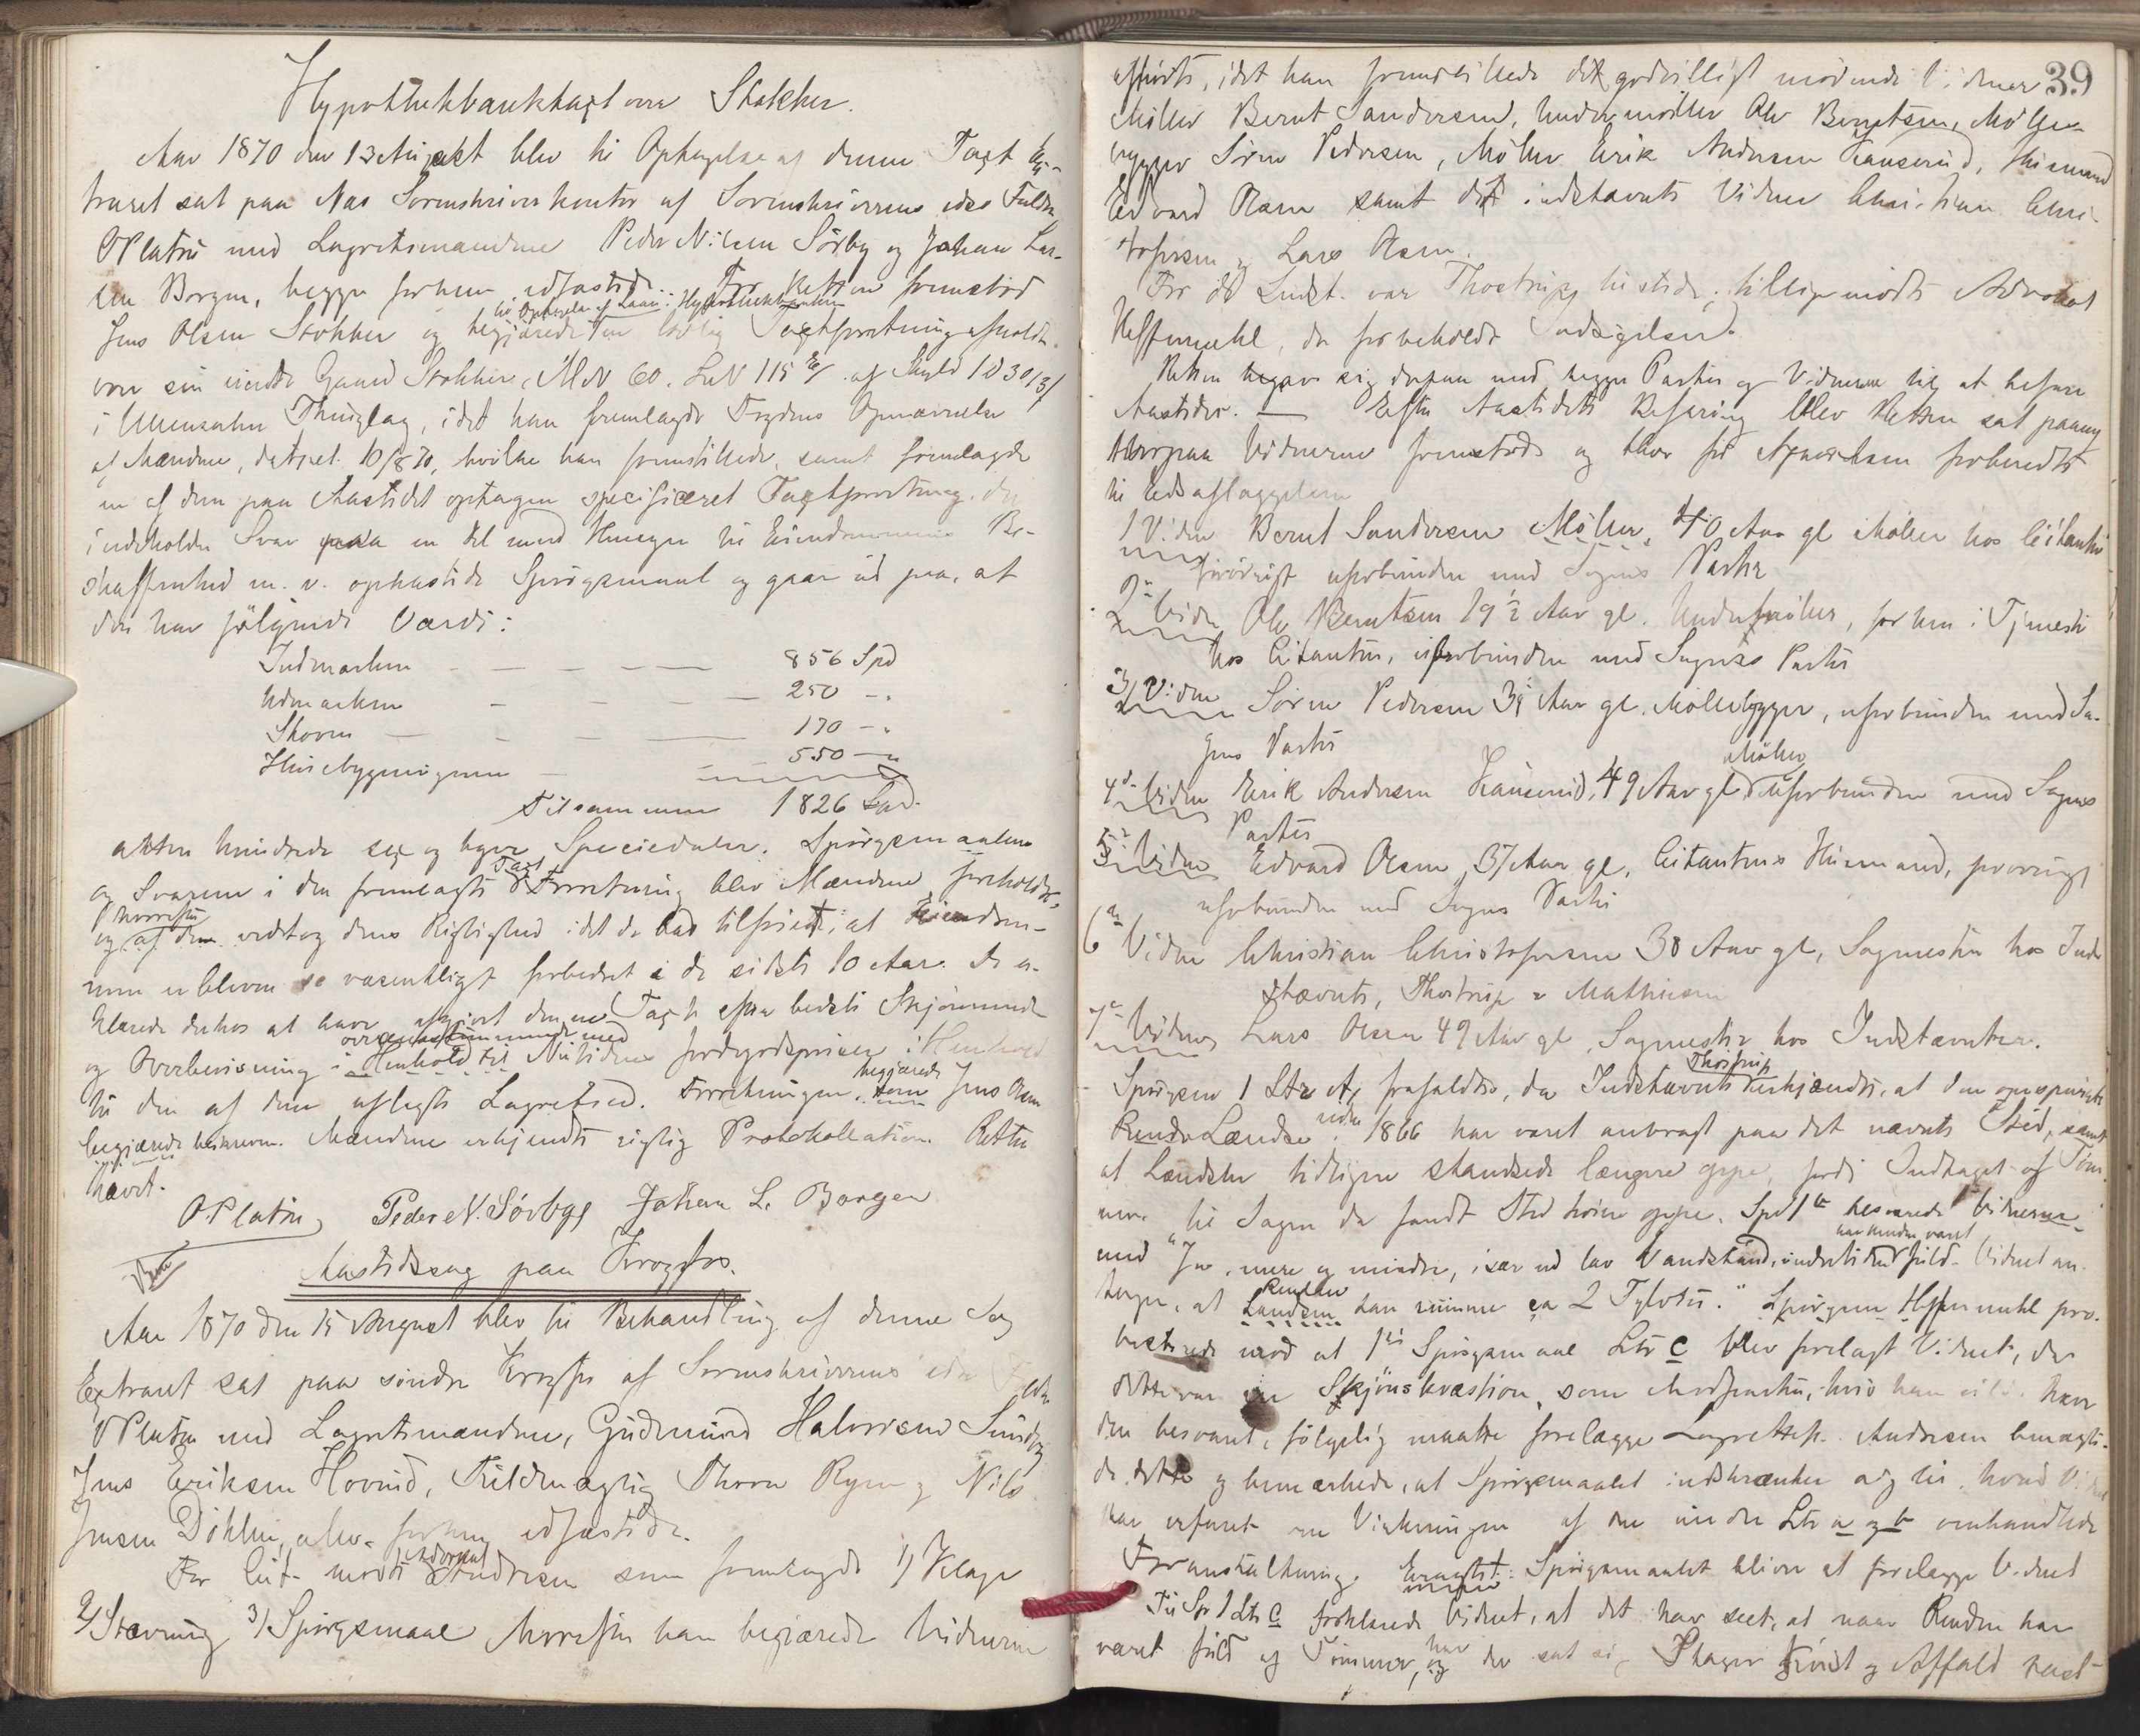 Hypothekbanktaxt over Stokker.
Aar 1870 den 13 August blev til Optagelse af denne Taxt Ex-
traret sat paa Nes Sorenskriverkontor af Sorenskriverens edsv Fuldm
O Platou med Lagrettesmændene Peder Nilsen Sörby og Johan Lar-
sen Borgen, begge forhen edfæstede. For Retten fremstod
til Optagelse af Laan i Hypothekbanken
Jens Olsen Stokker og begjærede en lovlig Taxtforretning afholdt
over sin eiende Gaard Stokker, M N 60. L N 115 af Skyld 1 D 3 O 13 /
i Ullensaker Thinglag, idet han fremlagde Fogdens Opnævnelse
af Mændene, dateret 10/8 70, hvilke han fremstillede, samt fremlagde
en af dem paa Aastedet optagen specificeret Taxtforretning, der
indeholder Svar paa en Del med Hensyn til Eiendommens Be-
skaffenhed m. v. opkastede Spörgsmaal og gaar ud paa, at
den har fölgende Værdi:
Indmarken — — — — 856 Spd
Udmarken — — — — 250 — "
Skoven — — — — 170 — "
Husebygningerne — — 550 — "
Tilsammen 1826 Spd.
atten hundrede sex og tyve Speciedaler. Spörgsmaalene
og Svarene i den fremlagte Taxtforretning blev Mændene foreholdt,
hvorefter
og af dem vedtog dens Rigtighed idet de bad tilföiet, at Eiendom-
men er bleven saa væsentligt forbedret i de sidste 10 Aar. De er-
klærede derhos at have afgivet denne Taxt efter bedste Skjönnende
overensstemmende med
og Overbevisning i Henhold til Nutidens Jordgodspriser i Henhold
til den af dem aflagte Lagrettesed. Forretningen begjærede som Jens Olsen
begjærede beskreven. Mændene erkjendte rigtig Protokollation. Retten
hævet.
O. Platou Peder N. Sörbye Johan L. Borgen
Aastedssag paa Krogsfos.
Aar 1870 den 15 August blev til Behandling af denne Sag
Extraret sat paa söndre Krogsfos af Sorenskriverens edsv Fuldm
O Platou med Lagrettesmændene, Gudmund Halvorsen Sundby
Jens Eriksen Hovind, Fuldmægtig Thorn Ryen og Nils
Jensen Döhlen, alle forhen edfæstede.
For Cit. mödte Advokat Andresen som fremlagde 1/ Klage
2/ Stævning 3/ Spörgsmaal hvorefter han begjærede Vidnerne
39
afhörte, idet han fremstillede de godvilligt mödende Vidner
Möller Bernt Sandersen, Undermöller Ole Berntsen, Mölle-
bygger Sören Pedersen, Möller Erik Andersen Hauserud, Husmand
Edvard Olsen samt de indstævnte Vidner Christian Chri-
stofersen og Lars Olsen.
For de Indst. var Thostrup tilstede; tillige mödte Advokat
Heffermehl, der forbeholdt Indsigelser.
Retten begav sig derpaa med begge Parter og Vidnerne til at befare
Aastedet. — Efter Aastedets Befaring blev Retten sat paany
Hvorpaa Vidnerne fremstod og blev för Afhörelsen forberedte
til Edsaflæggelsen
1 Vidne Bernt Sandersen Möller, 40 Aar gl Möller hos Citanten
forövrigt uforbunden med Sagens Parter
2det Vidne Ole Berntsen 19 ½ Aar gl. Undermöller, forhen i Tjeneste
hos Citanten, uforbunden med Sagens Parter
3/ Vidne Sören Pedersen 39 Aar gl. Möllebygger, uforbunden med Sa-
gens Parter
4de Vidne Erik Andersen Hauserud, 49 Aar gl Möller uforbunden med Sagens
Parter
5te Vidne Edvard Olsen, 37 Aar gl, Citantens Husmand, forövrigt
uforbunden med Sagens Parter
6te Vidne Christian Christofersen 38 Aar gl, Sagmester hos Ind-
stævnte, Thostrup & Mathiesen
7de Vidne Lars Olsen 49 Aar gl, Sagmester hos Indstævnte.
Spörgsm 1 Ltr A, frafaldtes, da Indstævnte Thostrup erkjendte, at den omspurgte
Rende Lændse siden 1866 har været anbragt paa det nævnte Sted, samt
at Lændsen tidligere standsede længere oppe, fordi Indtaget af Töm-
mer til Sagen da fandt Sted höiere oppe. Spd 1 b besvarede Vidnerne
med "Ja, mere og mindre, især ved lav Vandstand, undertiden har Renden været fuld. Vidnet an-
tager, at Lændsen Renden kan rumme ca 2 Tylvter." Spörgsm Heffermehl pro-
testerede mod at 1ste Spörgsmaal Ltr C blev forelagt Vidnet, da
dette var en Skjönskvæstion, som Modparten, hvis han vilde have
den besvaret, fölgelig maatte forelægge Lagrettet. Andresen benægte-
de dette og bemærkede, at Spörgsmaalet indskrænker sig til, hvad Vidnet
har erfaret om Virkningen af den under Ltr a og b omhandlede
Foranstaltning. Eragtet: Spörgsmaalet bliver at forelægge Vidnet
Til Spr 1 Ltr C forklarede Vidnet, at det har seet, at naar Renden har
været fuld af Tömmer, har der sat sig Flager Kvist og Affald næst